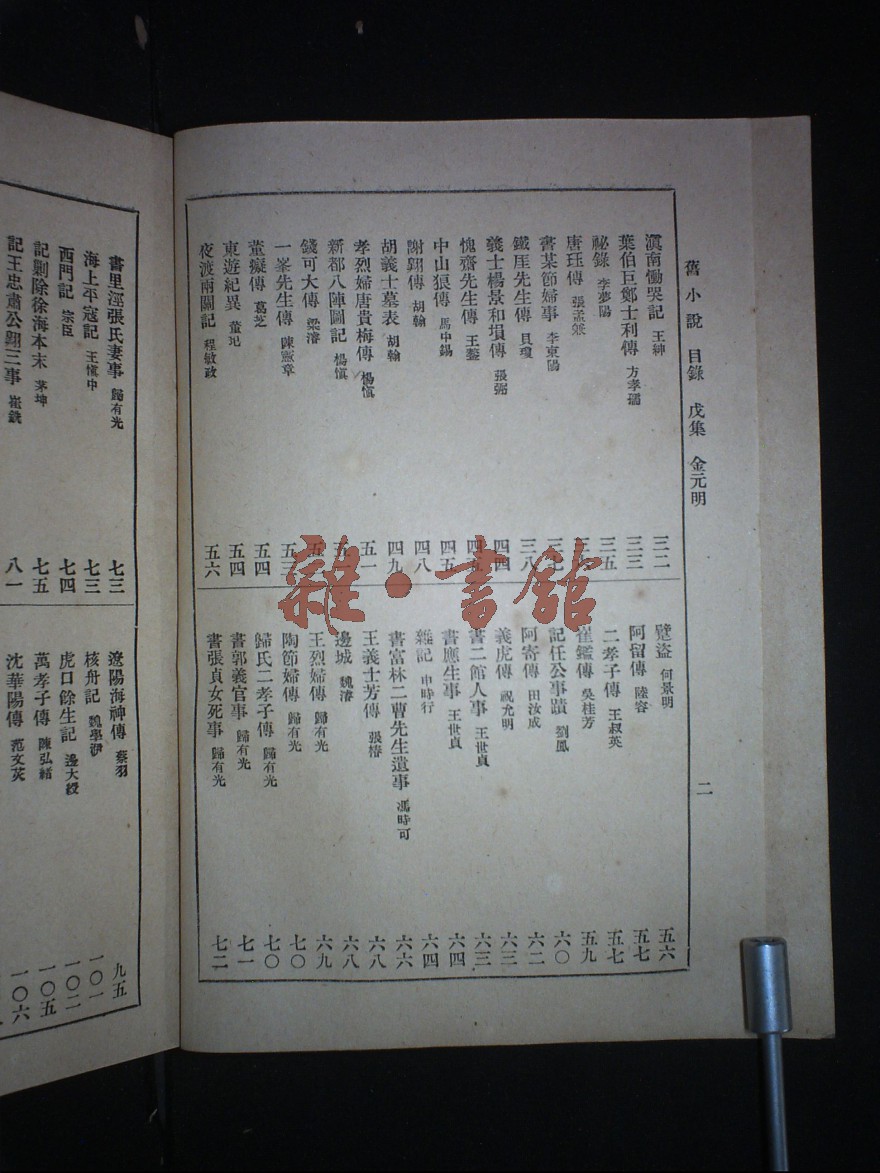 舊小說 目錄 戊集 金元明
二
滇南慟哭記 王紳 三二
葉伯巨鄭士利傳 方孝孺 三三
祕錄 李夢陽 三五
唐珏傳 張孟兼
書某節婦事 李東陽 三七
鐵厓先生傳 貝瓊 三八
義士楊景和塤傳 張弼 四四
愧齋先生傳 王鏊 四五
中山狼傳 馬中錫 四五
謝翱傳 胡翰 四八
胡義士墓表 胡翰 四九
孝烈婦唐貴梅傳 楊慎 五一
新都八陣圖記 楊慎
錢可大傳 梁濬
一峯先生傳 陳憲章 五三
葷癡傳 葛芝 五四
東遊紀異 董玘 五四
夜渡兩關記 程敏政 五六
躄盜 何景明 五六
阿留傳 陸容 五七
二孝子傳 王叔英 五七
崔鑑傳 吳桂芳 五九
記任公事蹟 劉鳳 六〇
阿寄傳 田汝成 六二
義虎傳 祝允明 六三
書二館人事 王世貞 六三
書應生事 王世貞 六四
雜記 申時行 六四
書富林二曹先生遺事 馮時可 六六
王義士芳傳 張椿 六八
邊城 魏濬 六八
王烈婦傳 歸有光 六九
陶節婦傳 歸有光 七〇
歸氏二孝子傳 歸有光 七〇
書郭義官事 歸有光 七一
書張貞女死事 歸有光 七二
書里涇張氏妻事 歸有光 七三
海上平寇記 王慎中 七三
西門記 宗臣 七四
記剿除徐海本末 茅坤 七五
記王忠肅公翱三事 崔銑 八一
遼陽海神傳 蔡羽 九五
核舟記 魏學洢 一〇一
虎口餘生記 邊大綬 一〇二
萬孝子傳 陳弘緒 一〇五
沈華陽傳 范文茨 一〇六
雜·書館